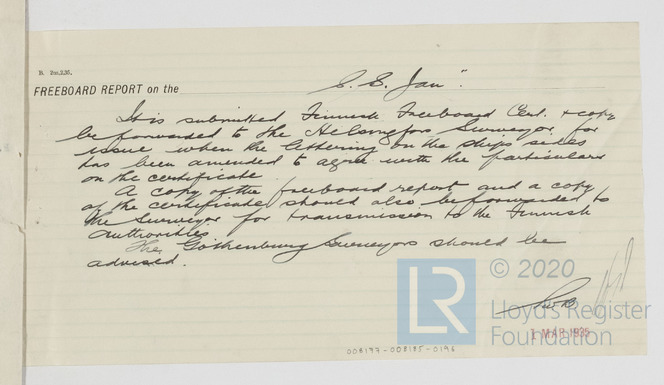 R. 2m.2,35.
FREEBOARD REPORT on the S.S. Jan".
It is submitted Finnish Freeboard Cert. + copy
be forwarded to the Helsingfors Surveyor for
issue when the lettering on the ships sides
has been amended to agree with the particulars
on the certificate.
A copy of the freeboard report and a copy
of the certificate should also be forwarded to
the Surveyor for transmission to the Finnish
Authorities.
The Gothenburg Surveyors should be
advised.
LR
© 2020
Lloyd's Register
Foundation
1 MAR 1935
008177-008185-0196